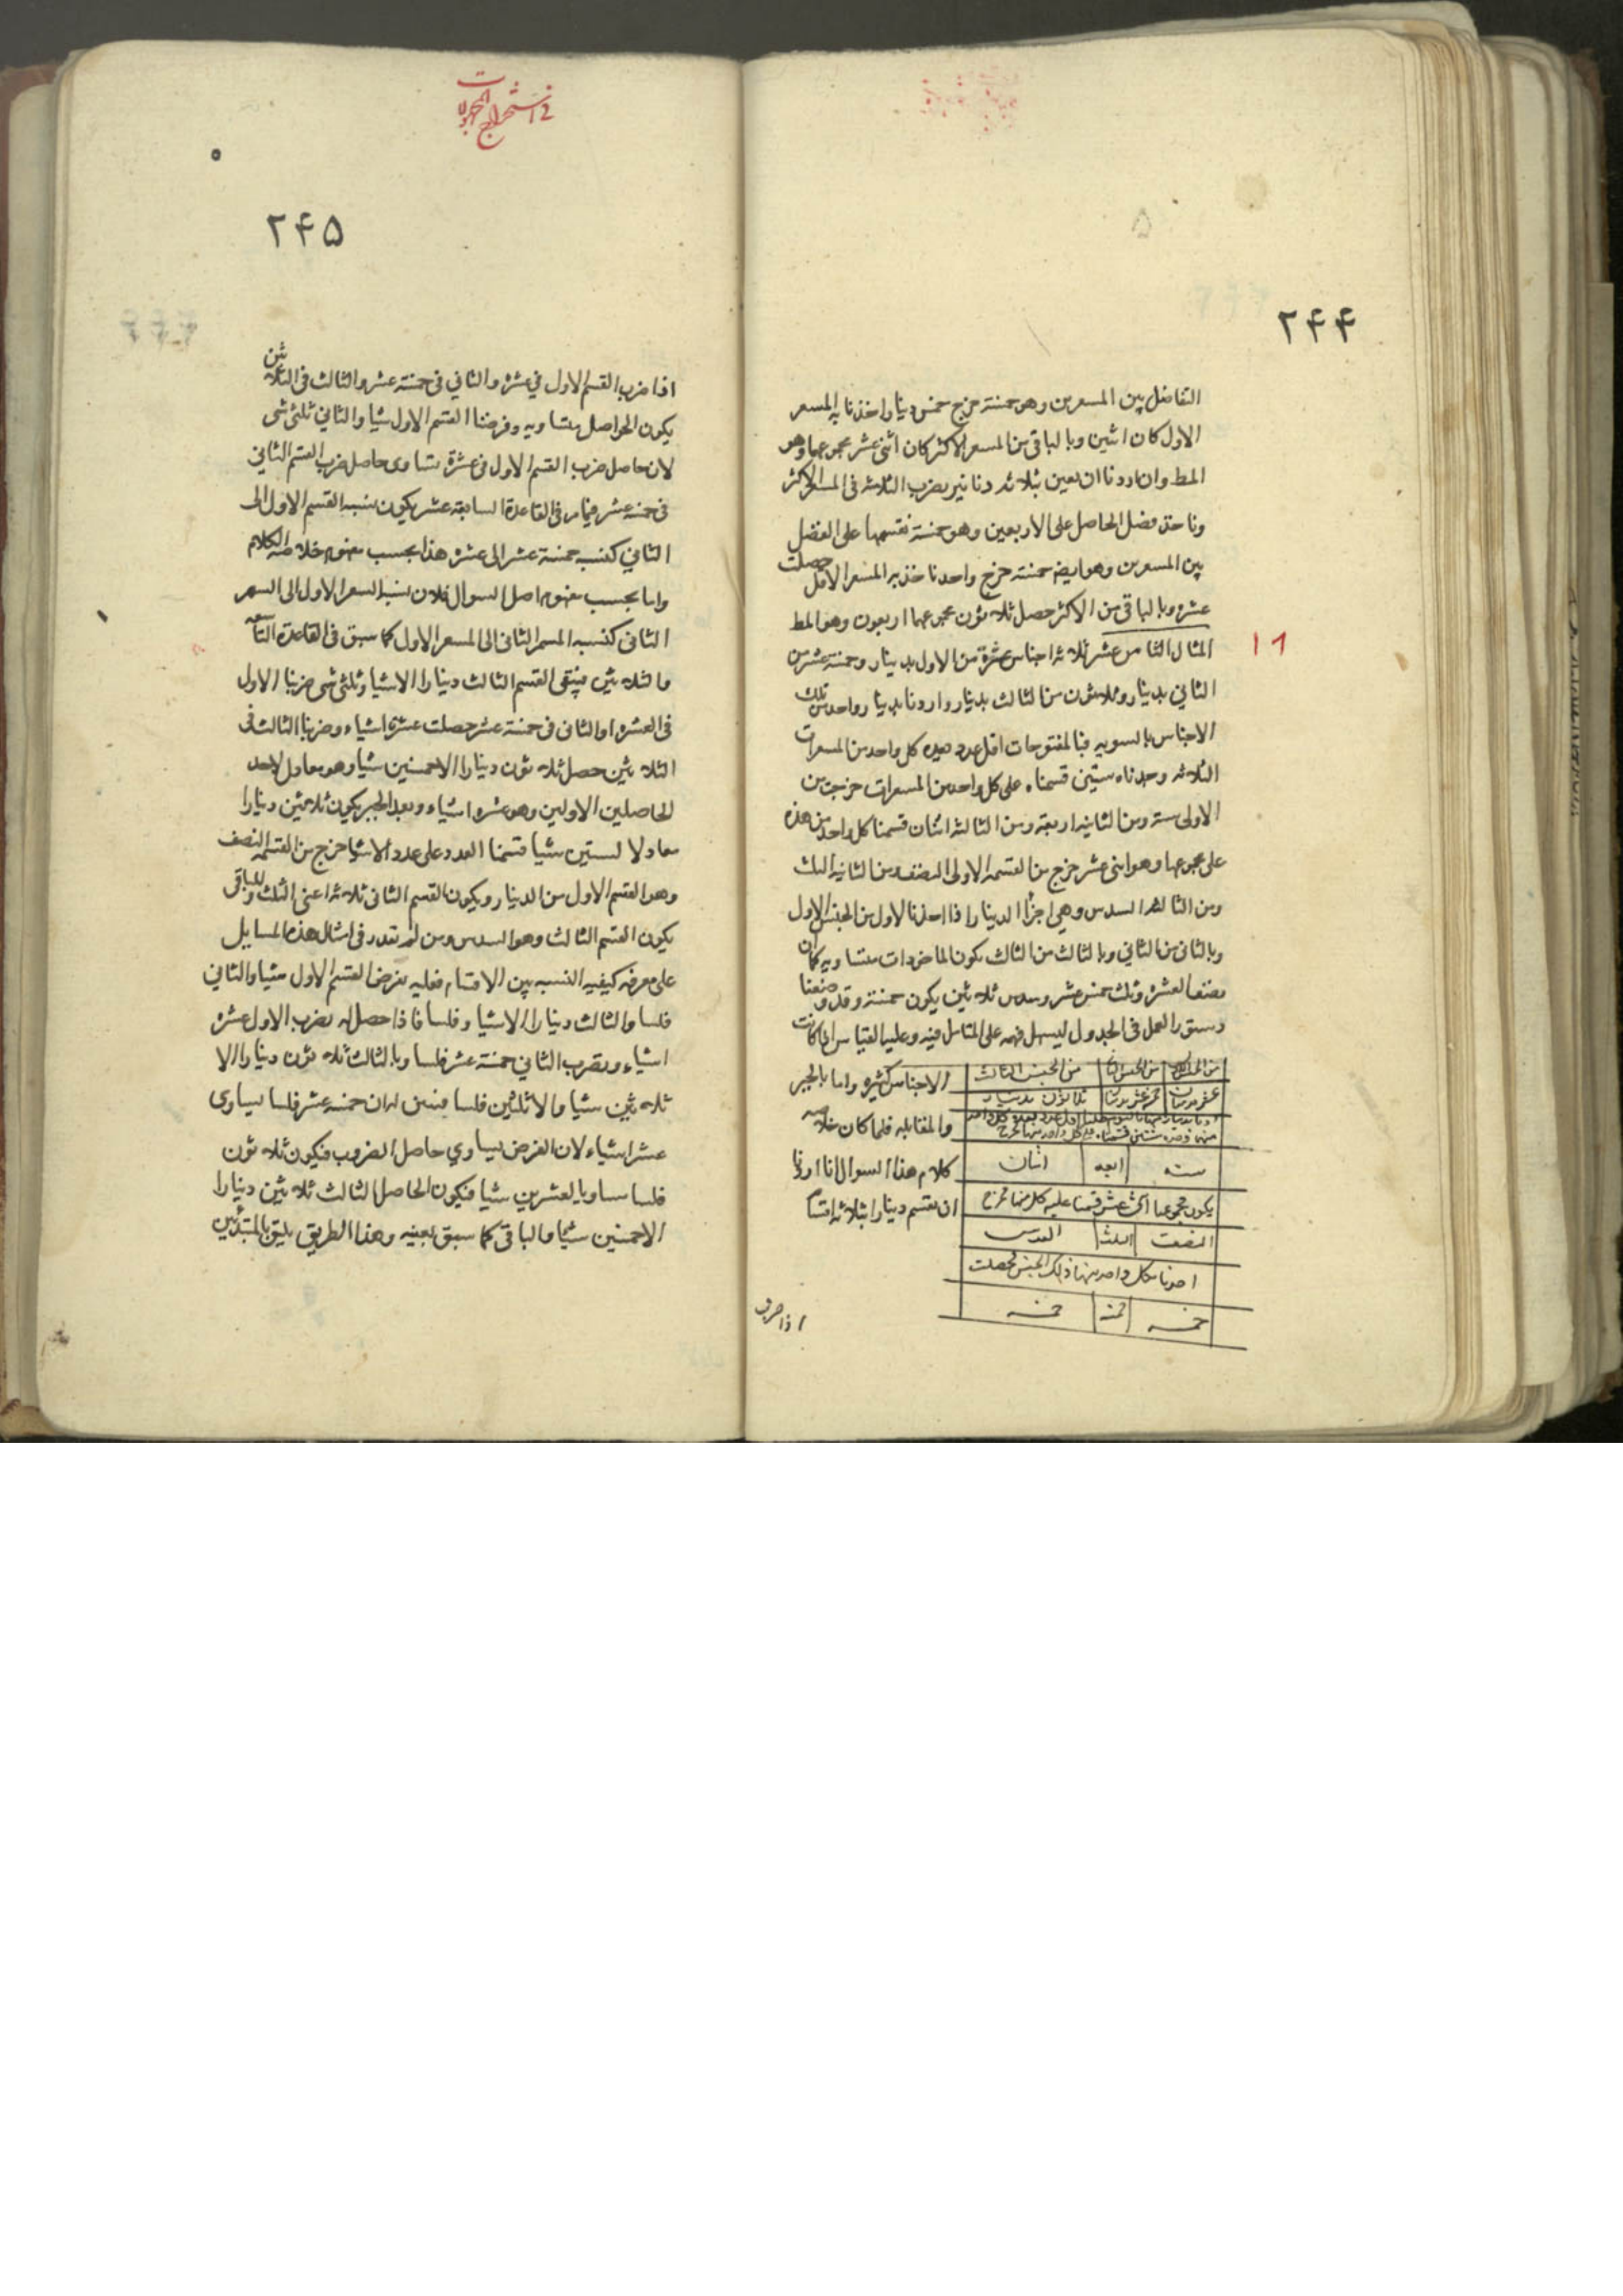 ۲۴۴
التفاضل بين المسعرين وهو خمسة خرج خمس دينار اخذنا به المسعر
الاول كان اثنين وبالباقي من المسعر الاكثر كان اثنى عشر مجموعهما وهو
المط وان اردنا ان بثلاثه دنانير بضرب الثلاثه فى المسعر الاكثر
وناخذ فضل الحاصل على الاربعين وهو خمسة نقسمها على الفضل
بين المسعرين وهو ايضا خمسة خرج واحد ناخذ به المسعر الاقل حصلت
عشره وبالباقى من الاكثر حصل ثلاثون مجموعهما اربعون وهو المط
١٨
المثال الثامن عشر ثلاثه اجناس عشرة من الاول بدينار وخمسة عشر من
الثاني بدينار وثلاثون من الثالث بدينار واردنا بدينار واحد من تلك
الاجناس بالسويه فبالمفتوحات اقل عدد يعده كل واحد من المسعرات
الثلاثه وجدناه ستين قسمناه على كل واحد من المسعرات خرجت من
الاولى سته ومن الثانيه اربعة ومن الثالثه اثنان قسمنا كل واحد من هذه
على مجموعها وهو اثنى عشر خرج من القسمه الاولى النصف ومن الثانيه الثلث
ومن الثالثه السدس وهي اجزأ الدينار اذا اخذنا الاول من الجنس الاول
وبالثانى من الثاني وبالثالث من الثالث يكون الماخوذات متساويه كان
نصف العشرة وثلث خمس عشر وسدس ثلاثين يكون خمسة وقد وضعنا
دستور العمل فى الجدول ليسهل فهمه على المتامل فيه وعليه القياس اذا كانت
الاجناس كثيره واما بالجبر
والمقابله فلما كان خلاصه
كلام هذا السوال انا اردنا
ان نقسم دينارا بثلاثه اقسام
من الجنس الاول من الجنس الثاني من الجنس الثالث
عشر بدينار خمسة عشر بدينار ثلاثون بدينار
سته اربعه اثنان
يكون مجموعها اثنى عشر قسمنا عليه كل منها فخرج
النصف الثلث السدس
اخذنا بكل واحد منها ذلك الجنس فحصلت
خمسه خمسه خمسه
اذا ضرب
فى استخراج المجهولات
۲۴۵
اذا ضرب القسم الاول في عشرة والثاني فى خمسة عشر والثالث فى الثلاثين
يكون الحواصل متساويه وفرضنا القسم الاول شيا والثاني ثلثى شى
لان حاصل ضرب القسم الاول فى عشرة يساوى حاصل ضرب القسم الثاني
فى خمسه عشر فيما مر فى القاعدة السابعة عشر يكون نسبه القسم الاول الى
الثاني كنسبه خمسة عشر الى عشره هذا بحسب مفهوم خلاصه الكلام
واما بحسب مفهوم اصل السوال فلان نسبه السعر الاول الى السعر
الثانى كنسبه المسعر الثانى الى المسعر الاول كما سبق فى القاعدة
والثلاثين فيبقى القسم الثالث دينارا الا شيا وثلثى شى ضربنا الاول
فى العشره او الثانى فى خمسة عشر حصلت عشرة اشياء وضربنا الثالث فى
الثلاثين حصل ثلاثون دينارا الا خمسين شيا وهو معادل لاحد
الحاصلين الاولين وهو عشره اشياء وبعد الجبر يكون ثلاثين دينارا
معادلا لستين شيا قسمنا العدد على عدد الاشيا خرج من القسمه النصف
وهو القسم الاول من الدينار ويكون القسم الثانى ثلثاه اعنى الثلث والباقى
يكون القسم الثالث وهو السدس ومن لم يقدر فى امثال هذه المسايل
على معرفه كيفيه النسبه بين الاقسام فعليه بفرض القسم الاول شيا والثاني
فلسا والثالث دينارا الا شيا وفلسا فاذا حصل له بضرب الاول عشره
اشياء وبضرب الثاني خمسة عشر فلسا وبالثالث ثلاثون دينارا الا
ثلاثين شيا والا ثلثين فلسا فتبين له ان خمسه عشر فلسا يساوى
عشر اشياء لان الفرض يساوي حاصل الضروب فيكون ثلاثون
فلسا مساويا لعشرين شيا فيكون الحاصل الثالث ثلاثين دينارا
الا خمسين شيا والباقى كما سبق بعينه وهذا الطريق يليق بالمبتدئين